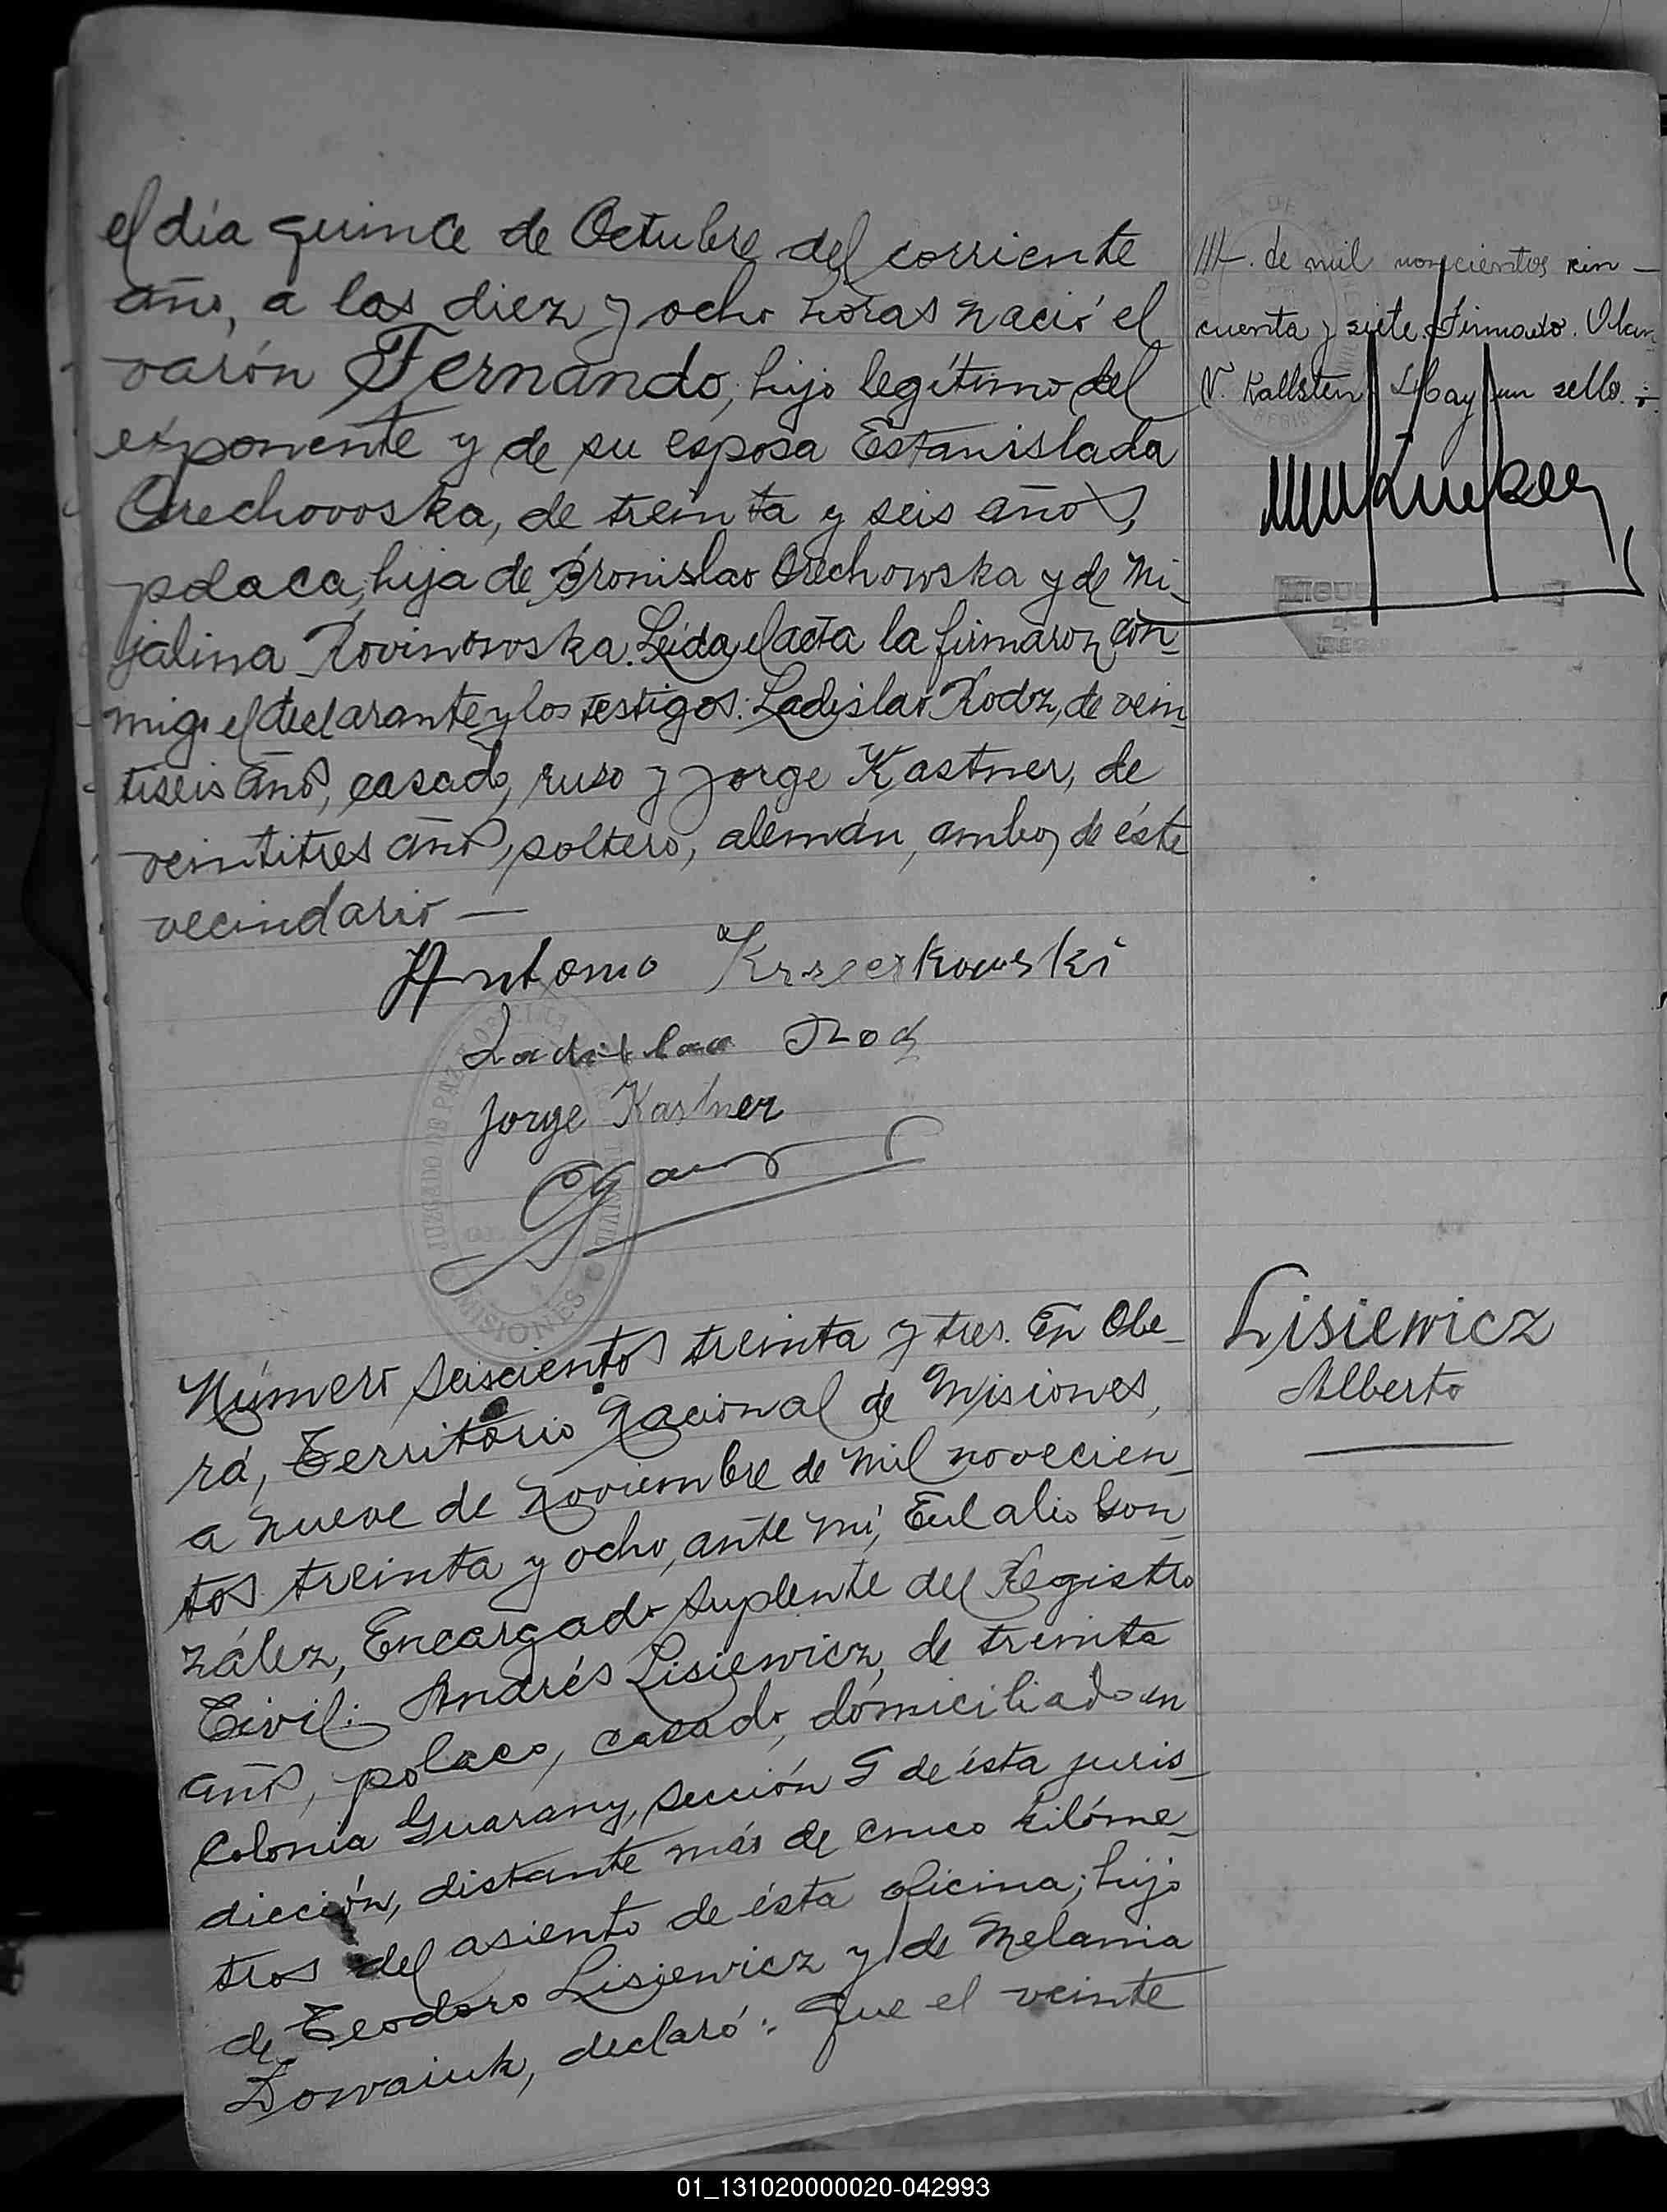 el día quince de Octubre del corriente
año, a las diez y ocho horas nació el
varón Fernando, hijo legítimo del
exponente y de su esposa Estanislada
Orechovoska, de treinta y seis años,
polaca, hija de Bronislao Orechowska y de Mi-
jalina Rovinovoska. Leída el acta la firmaron con-
migo el declarante y los testigos: Ladislao Rodz, de vein-
tiseis años, casado, ruso y Jorge Kastner, de
veintitres años, soltero, alemán, ambos de éste
vecindario —
Antonio Krzeczkowski
Ladislao Rodz
Jorge Kastner
JUZGADO DE PAZ
MISIONES
///-. de mil novecientos cin-
cuenta y siete. Firmado.
V. Kallsten. Hay un sello.
Número seiscientos treinta y tres. En Obe-
rá, Territorio Nacional de Misiones,
a nueve de Noviembre de mil novecien-
tos treinta y ocho, ante mí, Eulalio Gon-
zález, Encargado Suplente del Registro
Civil: Andrés Lisiewicz, de treinta
años, polaco, casado, domiciliado en
Colonia Guarany, sección 5 de ésta juris-
dicción, distante más de cinco kilóme-
tros del asiento de ésta oficina; hijo
de Teodoro Lisiewicz y de Melania
Dowaiuk, declaró: Que el veinte
Lisiewicz
Alberto
01_131020000020-042993